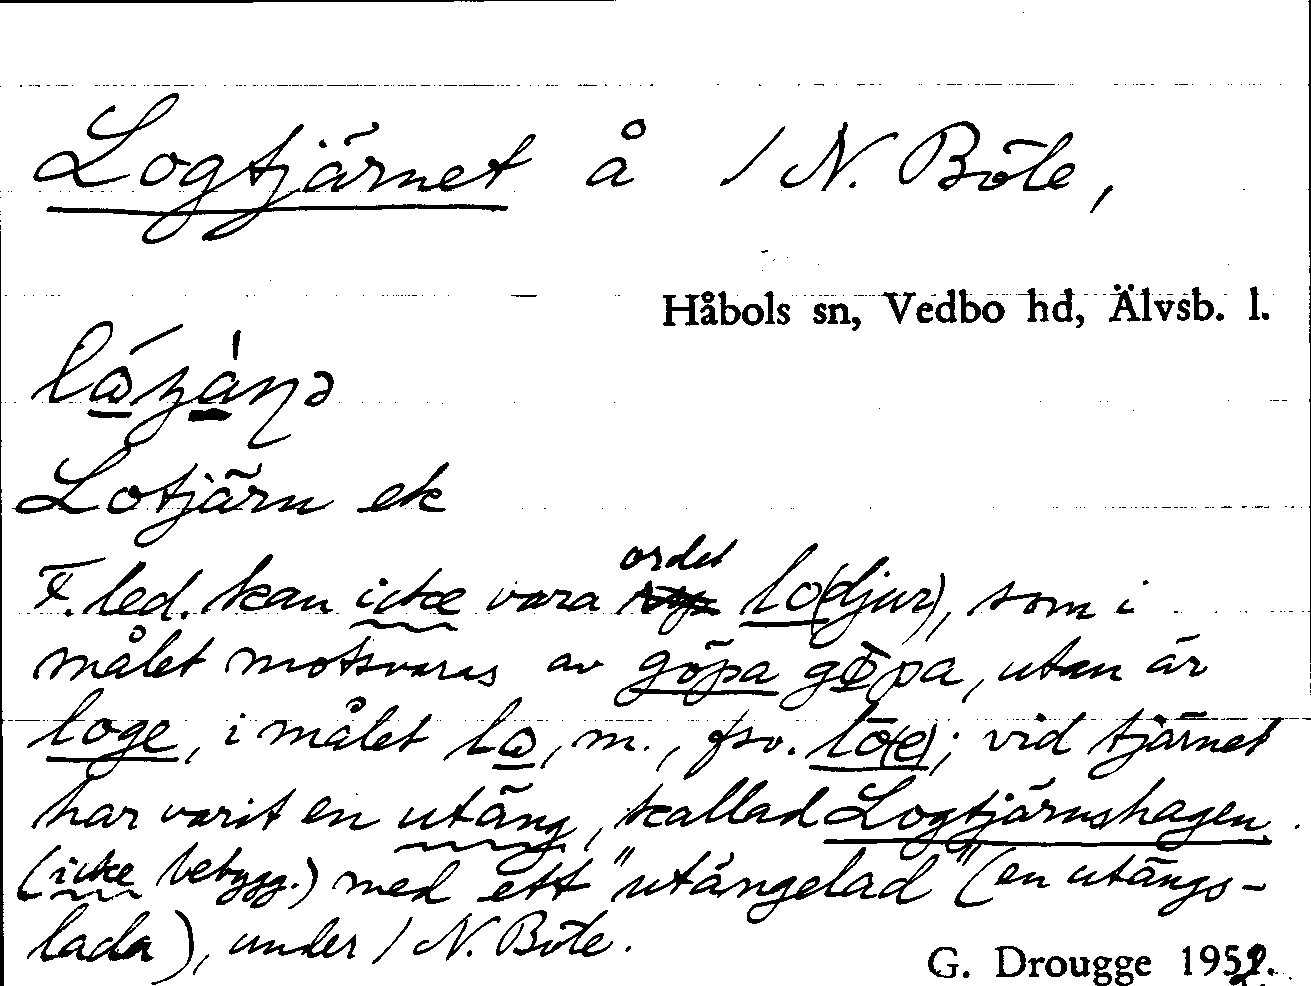 Logtjärnet å 1 N. Böle,
Håbols sn, Vedbo hd, Älvsb. l.
Lotjärn ek
F. led. kan icke vara ordet lo(djur), som i
målet motsvaras av göpa, utan är
loge, i målet la, m., fsv. lō(e); vid tjärnet
har varit en utäng, kallad Logtjärnshagen
(icke bebygg.) med ett "utängelad" (en utängs-
lada), under 1 N. Böle.
G. Drougge 1952.